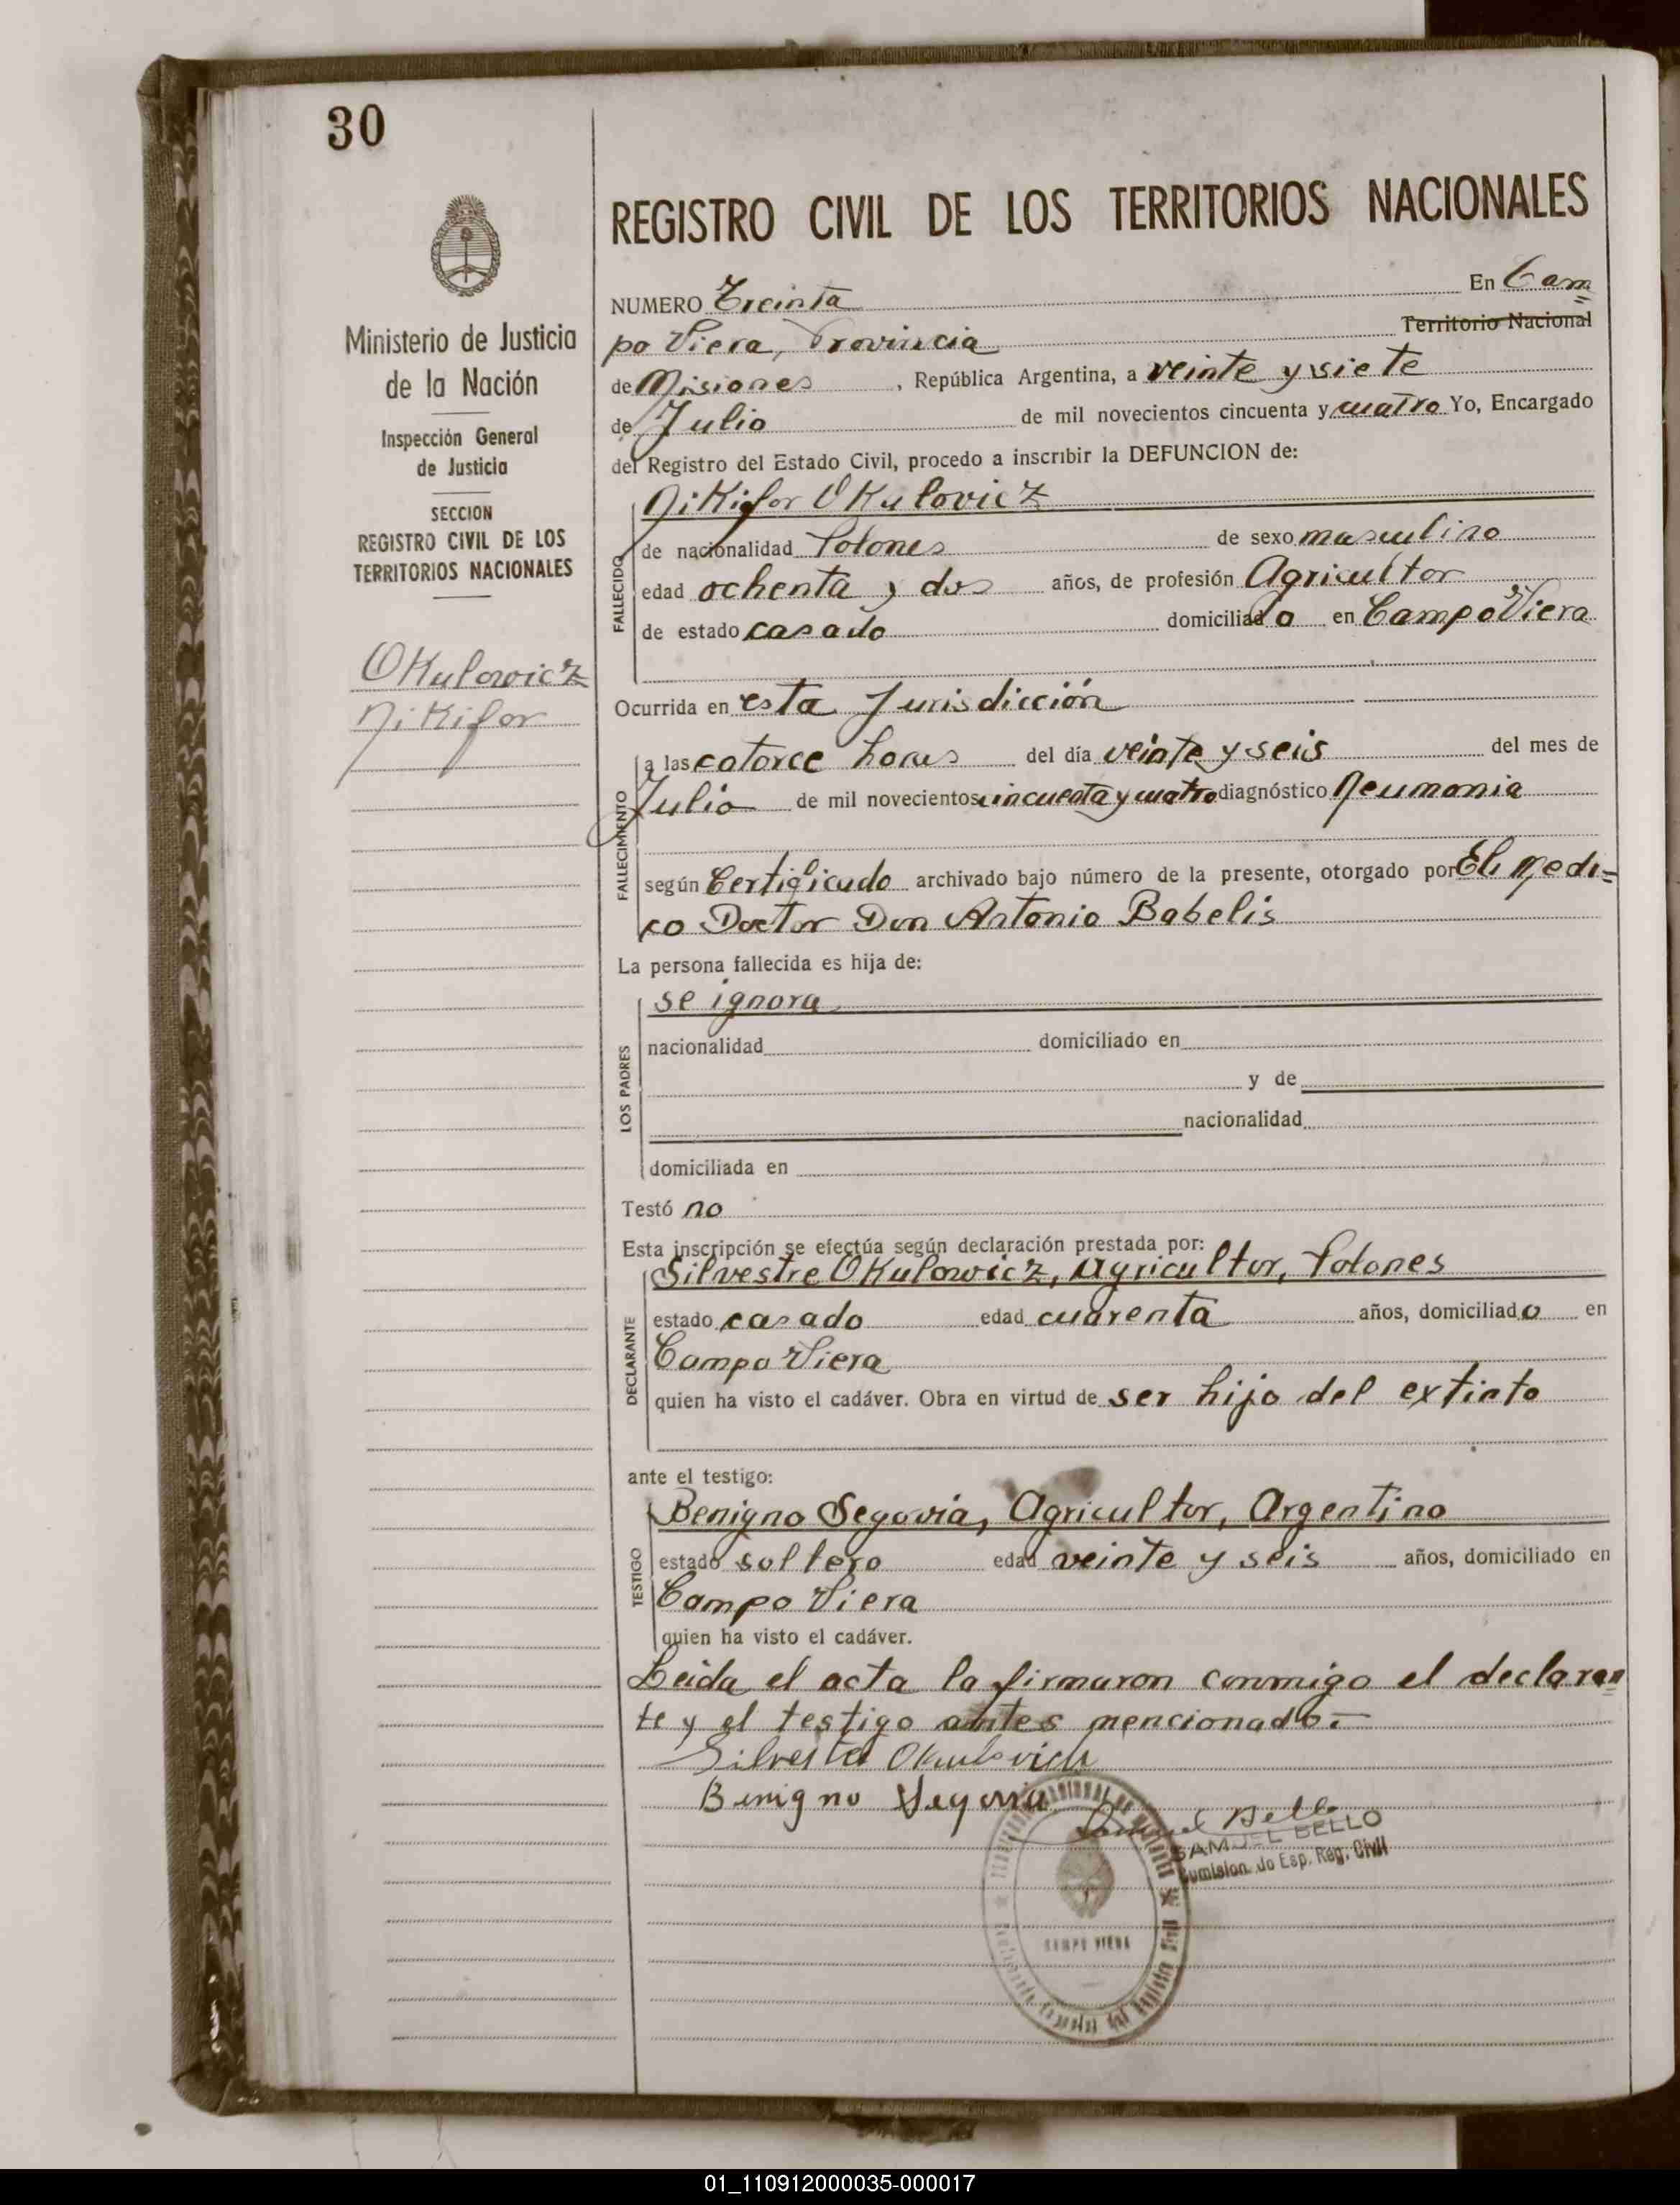 30
Ministerio de Justicia
de la Nación
Inspección General
de Justicia
SECCION
REGISTRO CIVIL DE LOS
TERRITORIOS NACIONALES
OKulowicz
NiKifor
REGISTRO CIVIL DE LOS TERRITORIOS NACIONALES
NUMERO Treinta En Cam=
po Viera, Provincia Territorio Nacional
de Misiones, República Argentina, a veinte y siete
de Julio de mil novecientos cincuenta y cuatro Yo, Encargado
del Registro del Estado Civil, procedo a inscribir la DEFUNCION de:
NiKifor OKulovicz
FALLECIDO
de nacionalidad Polones de sexo masculino
edad ochenta y dos años, de profesión Agricultor
de estado casado domiciliado en Campo Viera
Ocurrida en esta Jurisdicción
FALLECIMIENTO
a las catorce horas del día veinte y seis del mes de
Julio de mil novecientos cincuenta y cuatro diagnóstico Neumonia
según Certificado archivado bajo número de la presente, otorgado por El Medi=
co Doctor Don Antonio Babelis
La persona fallecida es hija de:
LOS PADRES
se ignora
nacionalidad domiciliado en
y de
nacionalidad
domiciliada en
Testó no
Esta inscripción se efectúa según declaración prestada por:
DECLARANTE
Silvestre OKulowicz, Agricultor, Polones
estado casado edad cuarenta años, domiciliado en
Campo Viera
quien ha visto el cadáver. Obra en virtud de ser hijo del extinto
ante el testigo:
TESTIGO
Benigno Segovia, Agricultor, Argentino
estado soltero edad veinte y seis años, domiciliado en
Campo Viera
quien ha visto el cadáver.
Leida el acta la firmaron conmigo el declaran=
te y el testigo antes mencionado.-
Silvester Okulovich
Benigno Segovia
Samuel Bello
SAMUEL BELLO
Comisionado Esp. Reg. Civil
CAMPO VIERA
01_110912000035-000017